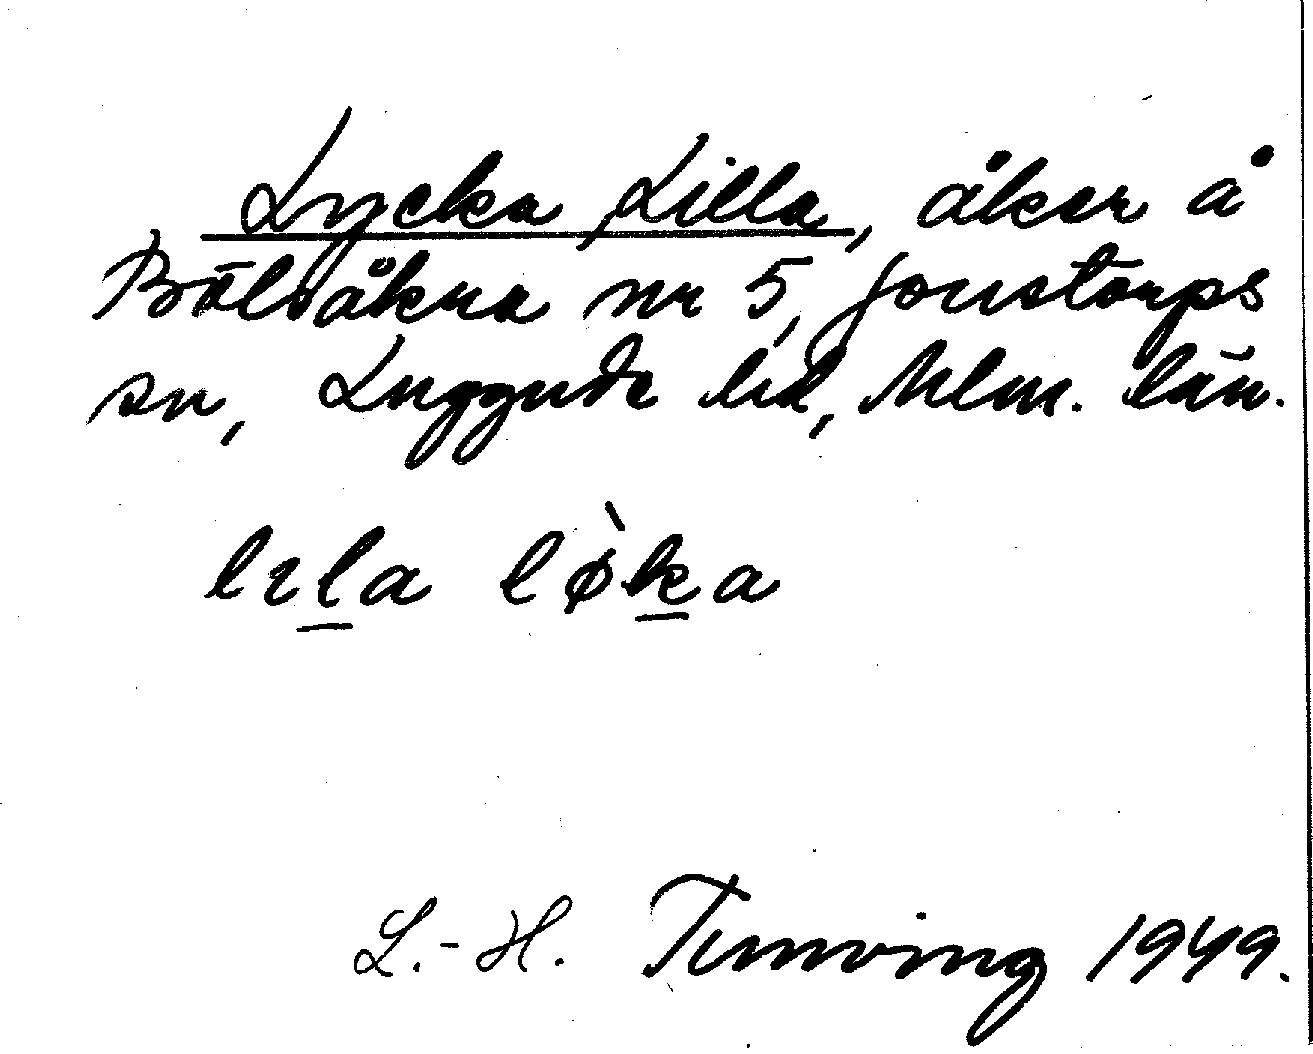 Lycka, Lilla, åker å
Bölsåkra nr 5, Jonstorps
sn, Luggude hd, Mlm. län.
lɪla lø̀ka
L.-H. Tunving 1949.